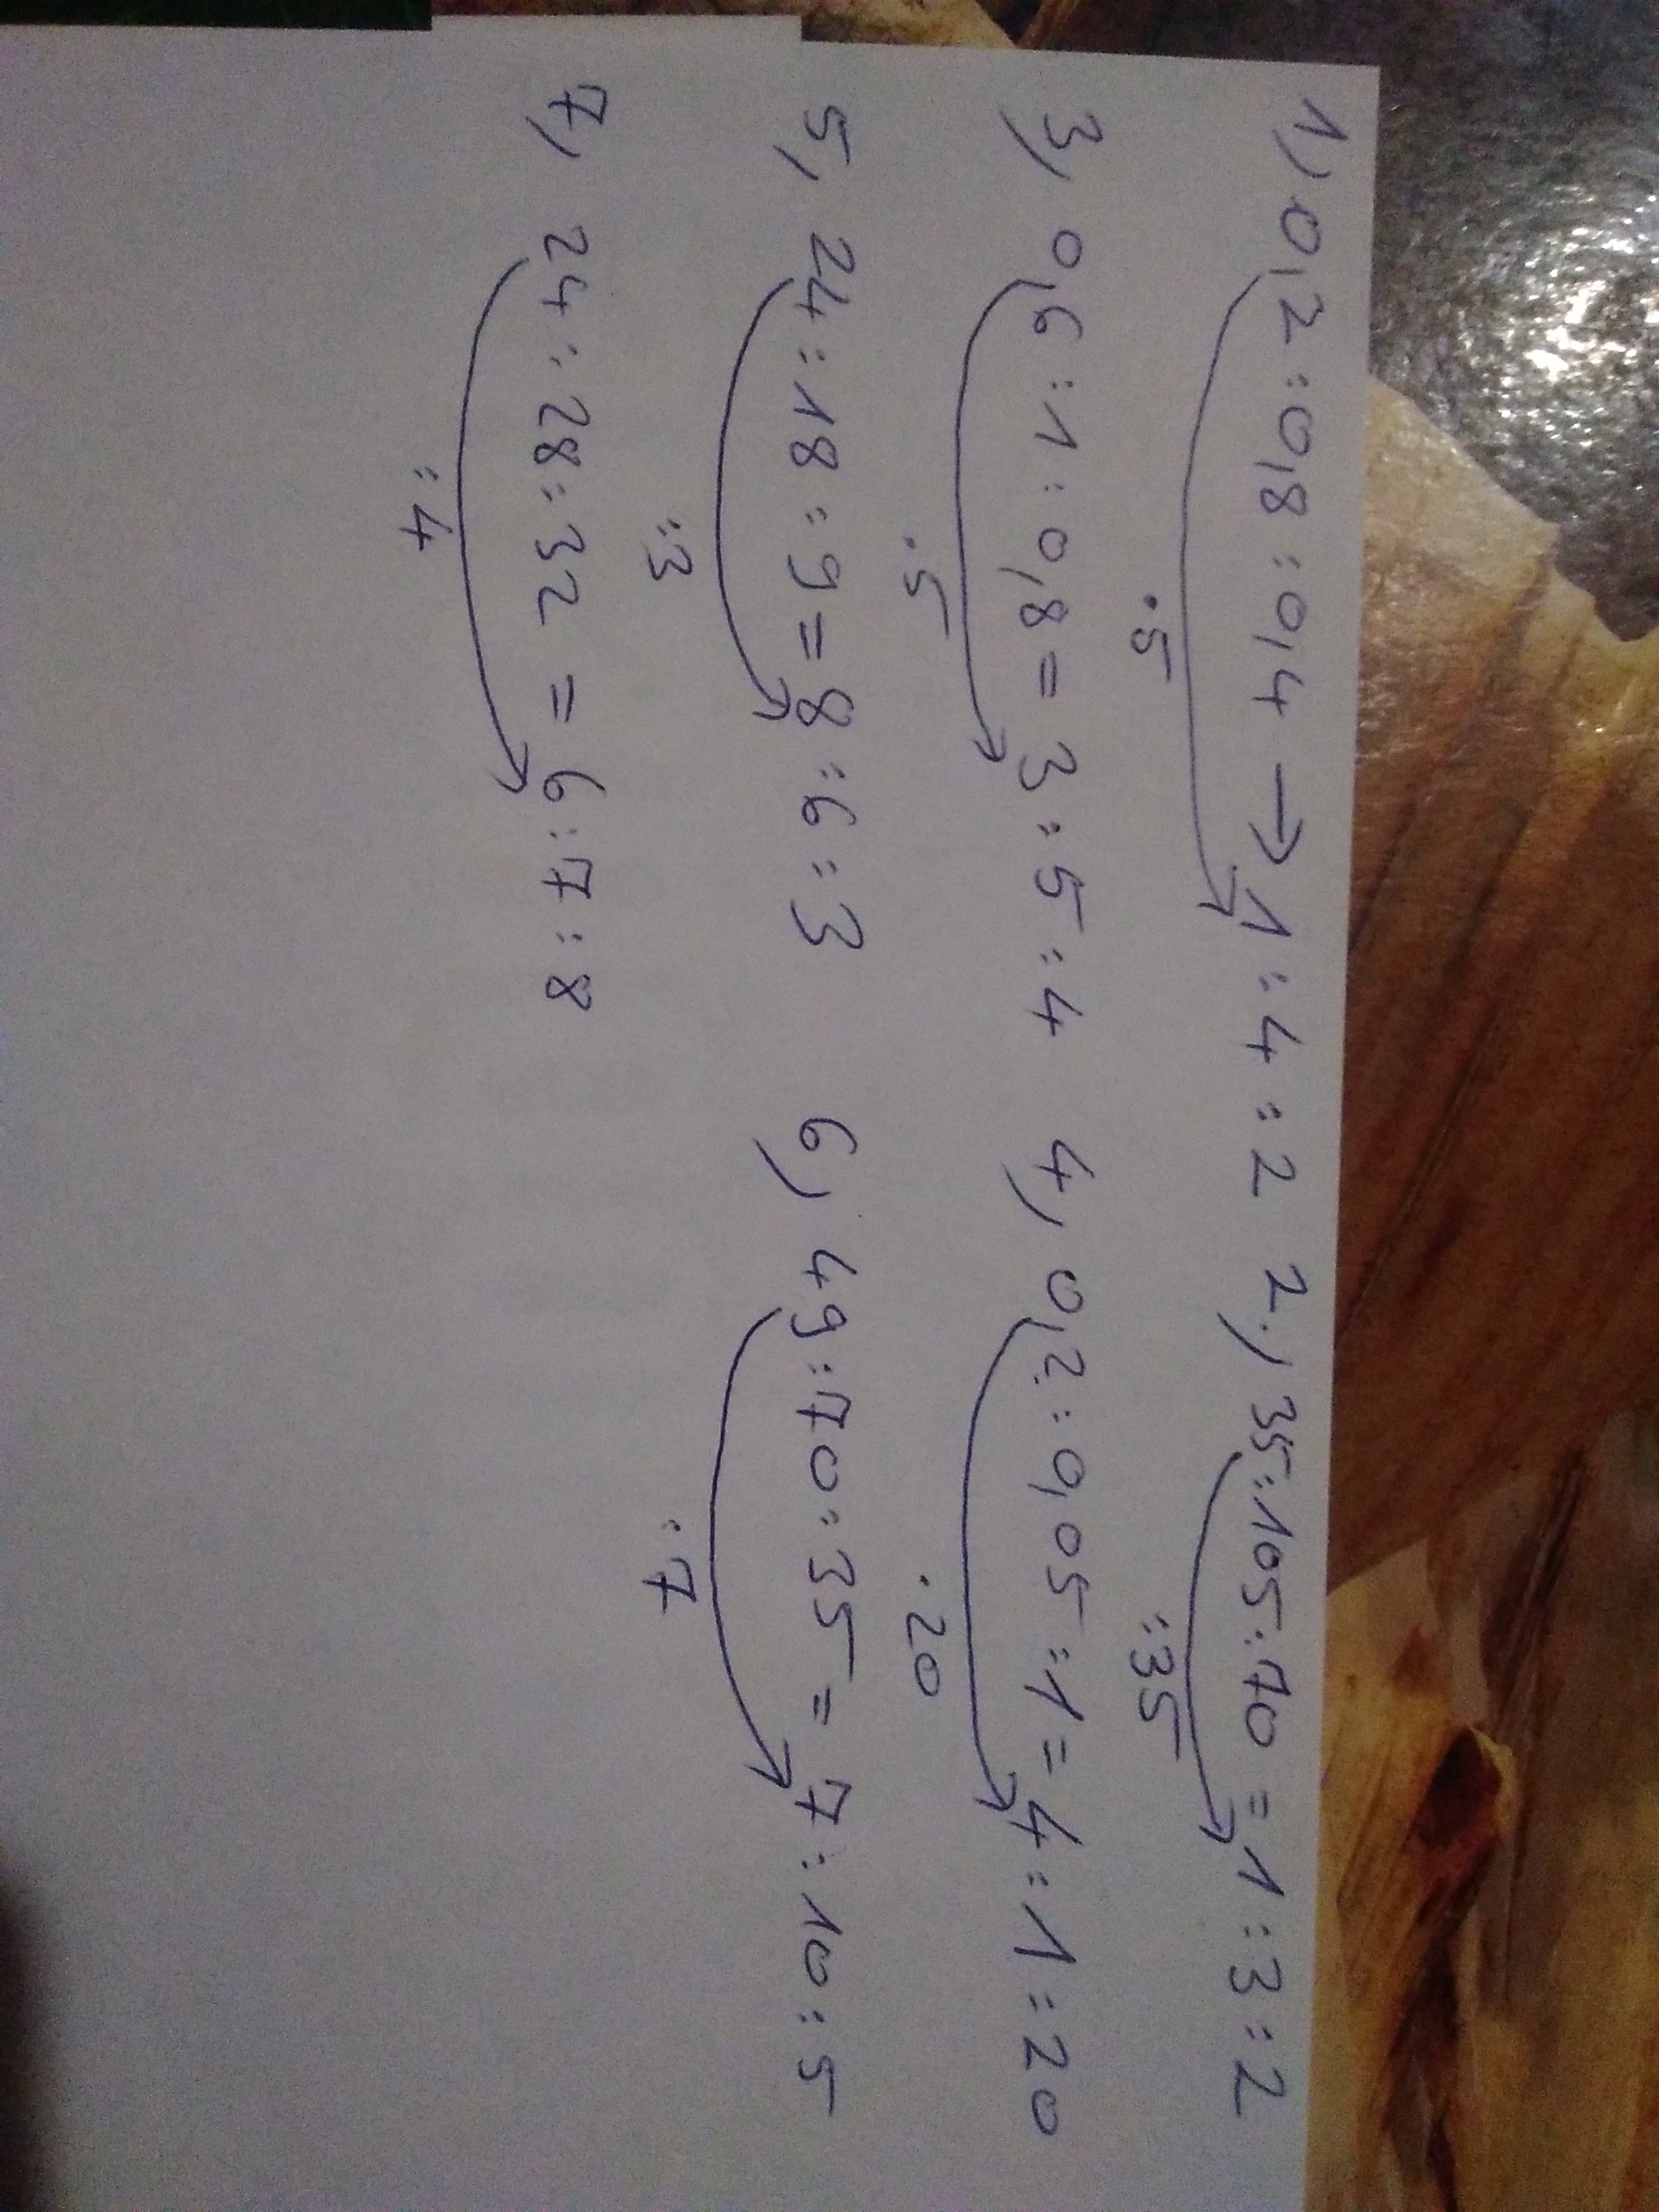 1.) 0,2 : 0,8 : 0,4 → 1 : 4 : 2 2.) 35 : 105 : 70 = 1 : 3 : 2
·5 :35
3.) 0,6 : 1 : 0,8 = 3 : 5 : 4 4.) 0,2 : 0,05 : 1 = 4 : 1 : 20
·5 ·20
5.) 24 : 18 : 9 = 8 : 6 : 3 6.) 49 : 70 : 35 = 7 : 10 : 5
:3 :7
7.) 24 : 28 : 32 = 6 : 7 : 8
:4